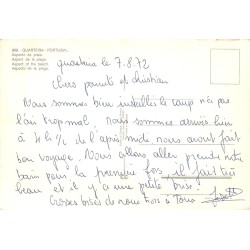 QUARTEIRA - PORTUGAL
Aspecto da praia.
Aspect de la plage.
Aspect of the beach.
Aspecto de la playa.
Quarteira le 7.8.72
Chers parents et christian
Nous sommes bien installés le camp n'a pas
l'air trop mal, nous sommes arrivés hier
à 4h1/2 de l'après midi nous avons fait
bon voyage. Nous allons aller prendre notre
bain pour la première fois, il fait très
beau et il y a une petite brise.
Grosses bises de nous trois à Tous